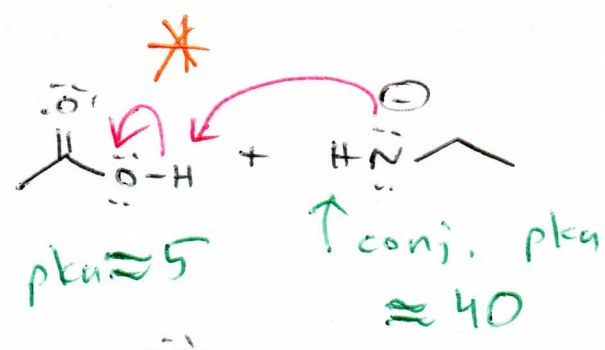 O
O - H + H N
⊖
pka≈5
↑ conj. pka
≈ 40